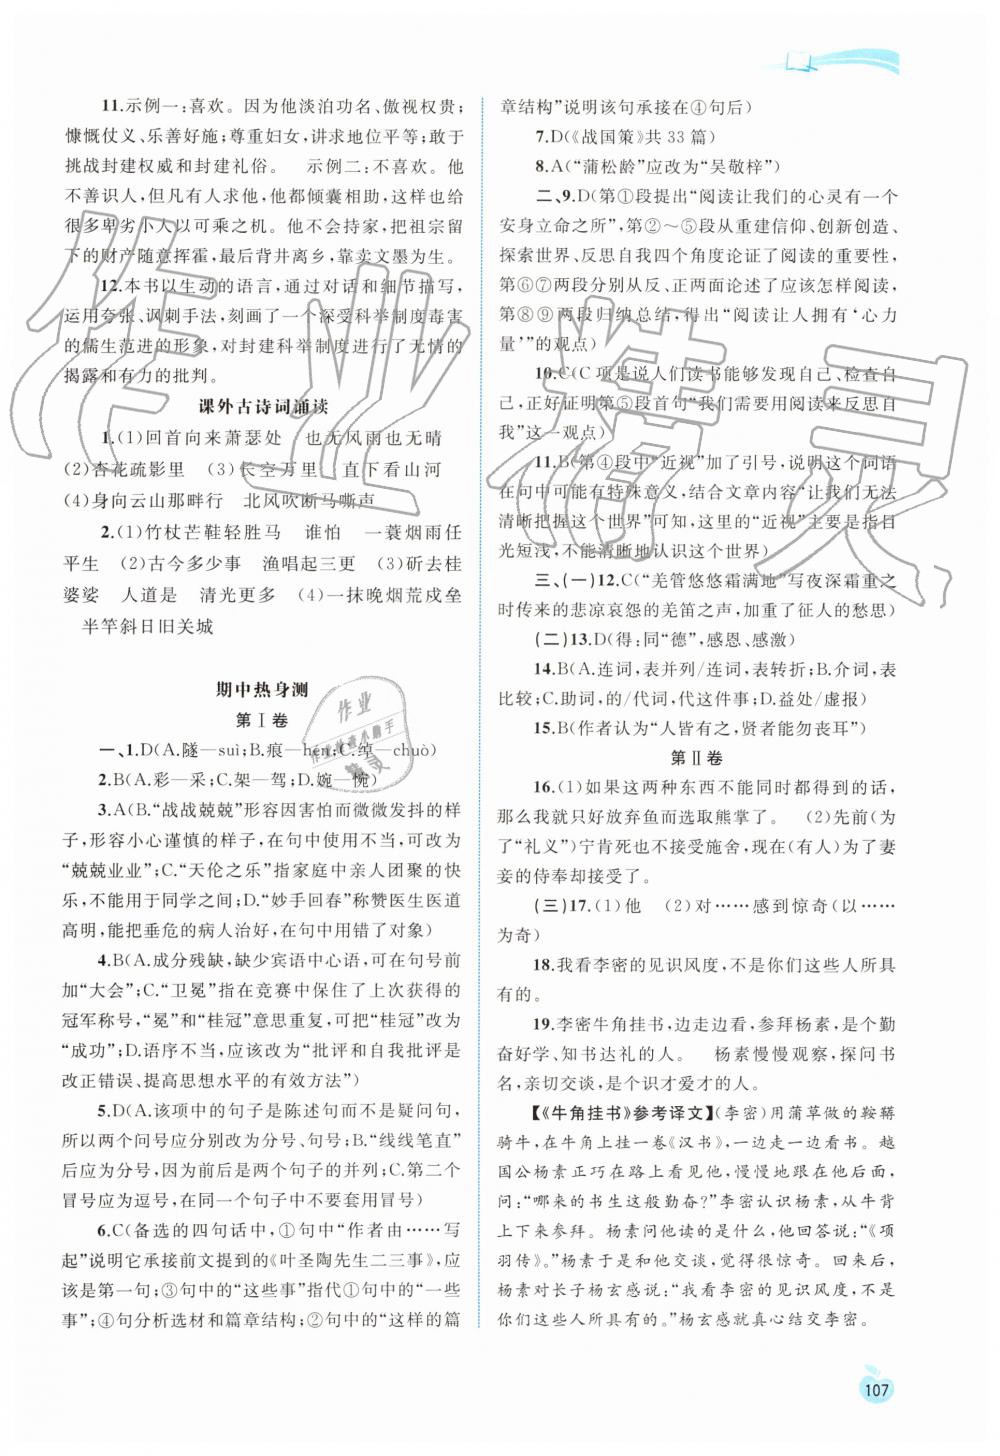 11.示例一:喜欢。因为他淡泊功名、傲视权贵;
慷慨仗义、乐善好施;尊重妇女,讲求地位平等;敢于
挑战封建权威和封建礼俗。 示例二:不喜欢。他
不善识人,但凡有人求他,他都倾囊相助,这样也给
很多卑劣小人以可乘之机。他不会持家,把祖宗留
下的财产随意挥霍,最后背井离乡,靠卖文墨为生。
12.本书以生动的语言,通过对话和细节描写,
运用夸张、讽刺手法,刻画了一个深受科举制度毒害
的儒生范进的形象,对封建科举制度进行了无情的
揭露和有力的批判。
课外古诗词诵读
1.(1)回首向来萧瑟处 也无风雨也无晴
(2)杏花疏影里 (3)长空万里 直下看山河
(4)身向云山那畔行 北风吹断马嘶声
2.(1)竹杖芒鞋轻胜马 谁怕 一蓑烟雨任
平生 (2)古今多少事 渔唱起三更 (3)斫去桂
婆娑 人道是 清光更多 (4)一抹晚烟荒戍垒
半竿斜日旧关城
期中热身测
第Ⅰ卷
一、1.D(A.隧—suì;B.痕—hén;C.绰—chuò)
2.B(A.彩—采;C.架—驾;D.婉—惋)
3.A(B.“战战兢兢”形容因害怕而微微发抖的样
子,形容小心谨慎的样子,在句中使用不当,可改为
“兢兢业业”;C.“天伦之乐”指家庭中亲人团聚的快
乐,不能用于同学之间;D.“妙手回春”称赞医生医道
高明,能把垂危的病人治好,在句中用错了对象)
4.B(A.成分残缺,缺少宾语中心语,可在句号前
加“大会”;C.“卫冕”指在竞赛中保住了上次获得的
冠军称号,“冕”和“桂冠”意思重复,可把“桂冠”改为
“成功”;D.语序不当,应该改为“批评和自我批评是
改正错误、提高思想水平的有效方法”)
5.D(A.该项中的句子是陈述句而不是疑问句,
句中的两个问号应分别改为分号、句号;B.“线线笔直”
后应为分号,该处是两个句子的并列;C.第二个
冒号应为逗号,在同一个句子中不要套用冒号)
6.C(备选的四句话中,①句中“作者由……写
起”说明它承接前文提到的《叶圣陶先生二三事》,应
该是第一句;③句中的“这些事”指代①句中的“一些
事”;④句分析选材和篇章结构;②句中的“这样的篇
章结构”说明该句承接在④句后)
7.D(《战国策》共33篇)
8.A(“蒲松龄”应改为“吴敬梓”)
二、9.D(第①段提出“阅读让我们的心灵有一个
安身立命之所”,第②～⑤段从重建信仰、创新创造、
探索世界、反思自我四个角度论证了阅读的重要性,
第⑥⑦两段分别从反、正两面论述了应该怎样阅读,
第⑧⑨两段归纳总结,得出“阅读让人拥有‘心力
量’”的观点)
10.C(C项是说人们读书能够发现自己、检查自
己,正好证明第⑤段首句“我们需要用阅读来反思自
我”这一观点)
11.B(第④段中“近视”加了引号,说明这个词语
在句中可能有特殊意义,结合文章内容“让我们无法
清晰把握这个世界”可知,这里的“近视”主要是指目
光短浅,不能清晰地认识这个世界)
三、(一)12.C(“羌管悠悠霜满地”写夜深霜重之
时传来的悲凉哀怨的羌笛之声,加重了征人的愁思)
(二)13.D(得:同“德”,感恩、感激)
14.B(A.连词,表并列/连词,表转折;B.介词,表
比较;C.助词,的/代词,代这件事;D.益处/虚报)
15.B(作者认为“人皆有之,贤者能勿丧耳”)
第Ⅱ卷
16.(1)如果这两种东西不能同时都得到的话,
那么我就只好放弃鱼而选取熊掌了。 (2)先前(为
了“礼义”)宁肯死也不接受施舍,现在(有人)为了妻
妾的侍奉却接受了。
(三)17.(1)他 (2)对……感到惊奇(以……
为奇)
18.我看李密的见识风度,不是你们这些人所具
有的。
19.李密牛角挂书,边走边看,参拜杨素,是个勤
奋好学、知书达礼的人。 杨素慢慢观察,探问书
名,亲切交谈,是个识才爱才的人。
【《牛角挂书》参考译文】(李密)用蒲草做的鞍鞯
骑牛,在牛角上挂一卷《汉书》,一边走一边看书。越
国公杨素正巧在路上看见他,慢慢地跟在他后面,
问:“哪来的书生这般勤奋?”李密认识杨素,从牛背
上下来参拜。杨素问他读的是什么,他回答说:“《项
羽传》。”杨素于是和他交谈,觉得很惊奇。回家后,
杨素对长子杨玄感说:“我看李密的见识风度,不是
你们这些人所具有的。”杨玄感就真心结交李密。
107
作业精灵
作业
作业快速小助手
精灵